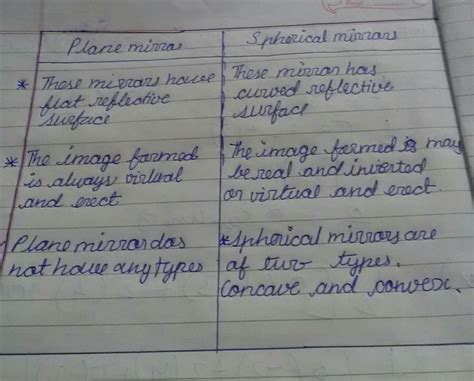 Plane mirror
Spherical mirrors
* These mirrors have
flat reflective
surface
These mirror has
curved reflective
surface
* The image formed
is always virtual
and erect
The image formed is may
be real and inverted
or virtual and erect.
Plane mirror das
not have any types
* Spherical mirrors are
of two types.
Concave and convex.